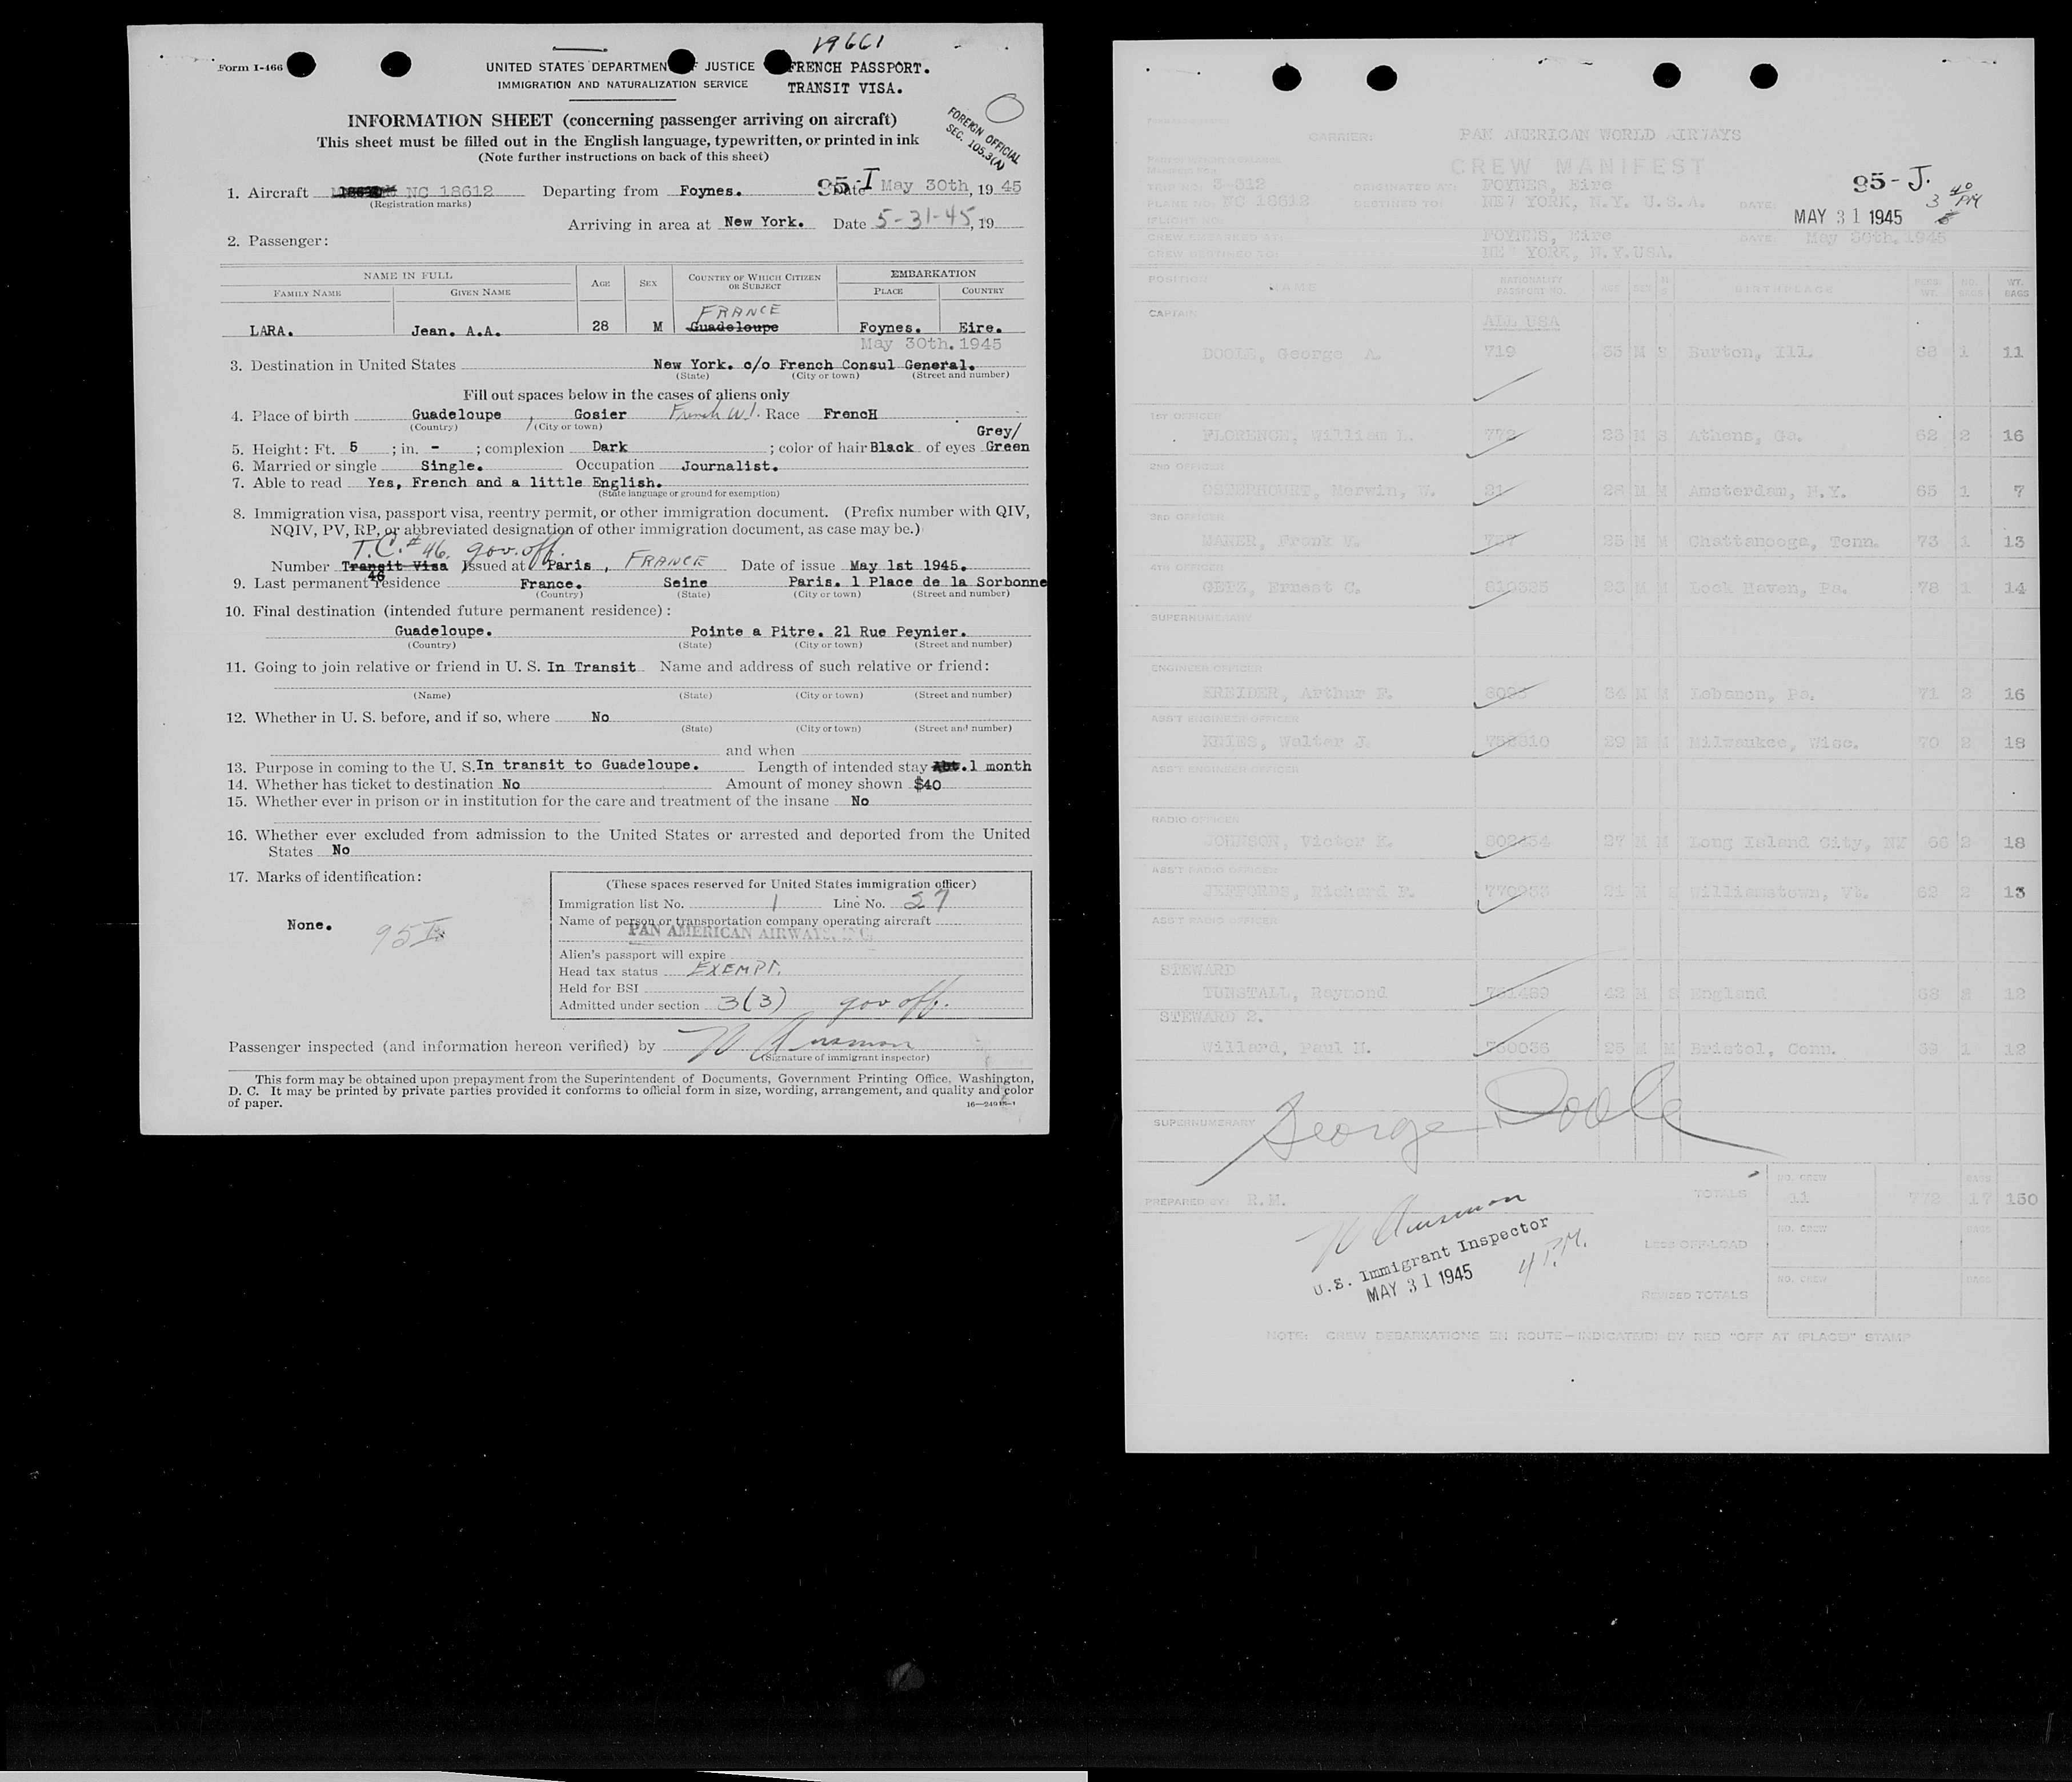 19661
Form I-466
UNITED STATES DEPARTMENT OF JUSTICE
FRENCH PASSPORT.
IMMIGRATION AND NATURALIZATION SERVICE
TRANSIT VISA.
FOREIGN OFFICIAL
SEC. 105.3(A)
INFORMATION SHEET (concerning passenger arriving on aircraft)
This sheet must be filled out in the English language, typewritten, or printed in ink
(Note further instructions on back of this sheet)
95-I
1. Aircraft NC 18612 Departing from Foynes. Date May 30th, 19 45
(Registration marks)
Arriving in area at New York. Date 5-31-45, 19
2. Passenger:
NAME IN FULL AGE SEX COUNTRY OF WHICH CITIZEN OR SUBJECT EMBARKATION
FAMILY NAME GIVEN NAME PLACE COUNTRY
FRANCE
LARA. Jean. A.A. 28 M Guadeloupe Foynes. Eire.
May 30th. 1945
3. Destination in United States New York. c/o French Consul General.
(State) (City or town) (Street and number)
Fill out spaces below in the cases of aliens only
4. Place of birth Guadeloupe, Gosier French W.I. Race FrencH
(Country) (City or town)
Grey/
5. Height: Ft. 5; in. -; complexion Dark; color of hair Black of eyes Green
6. Married or single Single. Occupation Journalist.
7. Able to read Yes, French and a little English.
(State language or ground for exemption)
8. Immigration visa, passport visa, reentry permit, or other immigration document. (Prefix number with QIV,
NQIV, PV, RP, or abbreviated designation of other immigration document, as case may be.)
T.C. # 46. gov. off.
Number Transit Visa Issued at Paris, FRANCE Date of issue May 1st 1945.
46
9. Last permanent residence France. Seine Paris. 1 Place de la Sorbonne
(Country) (State) (City or town) (Street and number)
10. Final destination (intended future permanent residence):
Guadeloupe. Pointe a Pitre. 21 Rue Peynier.
(Country) (State) (City or town) (Street and number)
11. Going to join relative or friend in U. S. In Transit Name and address of such relative or friend:
(Name) (State) (City or town) (Street and number)
12. Whether in U. S. before, and if so, where No
(State) (City or town) (Street and number)
and when
13. Purpose in coming to the U. S. In transit to Guadeloupe. Length of intended stay Abt. 1 month
14. Whether has ticket to destination No Amount of money shown $40
15. Whether ever in prison or in institution for the care and treatment of the insane No
16. Whether ever excluded from admission to the United States or arrested and deported from the United
States No
17. Marks of identification:
None.
95 I
(These spaces reserved for United States immigration officer)
Immigration list No. 1 Line No. 27
Name of person or transportation company operating aircraft
PAN AMERICAN AIRWAYS, INC.
Alien's passport will expire
Head tax status EXEMPT.
Held for BSI
Admitted under section 3(3) gov off.
Passenger inspected (and information hereon verified) by
(Signature of immigrant inspector)
This form may be obtained upon prepayment from the Superintendent of Documents, Government Printing Office, Washington,
D. C. It may be printed by private parties provided it conforms to official form in size, wording, arrangement, and quality and color
of paper.
CARRIER: PAN AMERICAN WORLD AIRWAYS
CREW MANIFEST
95-J.
3 40 PM
TRIP NO. 3-612 ORIGINATED AT: FOYNES, Eire
PLANE NO. NC 18612 DESTINED TO: NEW YORK, N.Y. U.S.A. DATE:
MAY 31 1945
CREW EMBARKED AT: FOYNES, Eire DATE: May 30th. 1945
CREW DESTINED TO: NEW YORK, N.Y. USA.
POSITION NAME NATIONALITY PASSPORT NO. AGE SEX BIRTHPLACE PERS. WT. NO. BAGS WT. BAGS
CAPTAIN ALL USA
DOOLE, George A. 719 35 M S Burton, Ill. 88 1 11
1ST OFFICER
FLORENCE, William L. 772 25 M S Athens, Ga. 62 2 16
2ND OFFICER
OSTERHOUDT, Merwin, W. 21 26 M M Amsterdam, N.Y. 65 1 7
3RD OFFICER
MAHER, Frank V. 25 M M Chattanooga, Tenn. 73 1 13
4TH OFFICER
GETZ, Ernest C. 810325 23 M M Lock Haven, Pa. 78 1 14
SUPERNUMERARY
ENGINEER OFFICER
KREIDER, Arthur F. 34 M M Lebanon, Pa. 71 2 16
ASS'T ENGINEER OFFICER
KRIES, Walter J. 758810 29 M M Milwaukee, Wisc. 70 2 18
ASS'T ENGINEER OFFICER
RADIO OFFICER
JOHNSON, Victor K. 802434 37 M M Long Island City, NY 66 2 18
ASS'T RADIO OFFICER
JEFFORDS, Richard P. 770933 21 M S Williamstown, Vt. 62 2 13
ASS'T RADIO OFFICER
STEWARD
TUNSTALL, Raymond 751489 42 M S England 68 2 12
STEWARD 2.
Willard, Paul H. 760036 25 M M Bristol, Conn. 69 1 12
George Doole
SUPERNUMERARY
PREPARED BY: R.M. TOTALS NO. CREW 11 772 BAGS 17 150
U.S. Immigrant Inspector
MAY 31 1945
4 P.M.
NO. CREW BAGS
LESS OFF-LOAD
NO. CREW BAGS
REVISED TOTALS
NOTE: CREW DEBARKATIONS EN ROUTE—INDICATED BY RED "OFF AT (PLACE)" STAMP